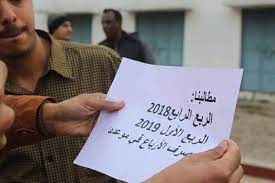 مطالبنا:
الربع الرابع 2018
الربع الأول 2019
صرف الأرباع في موعد